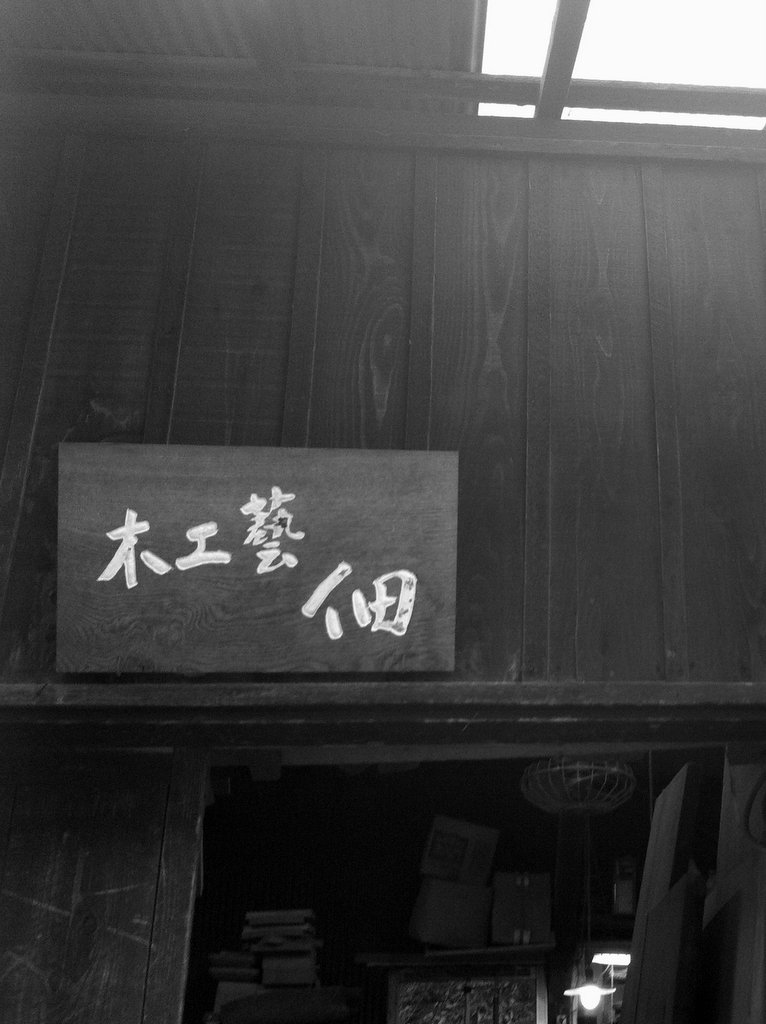 木工藝
佃